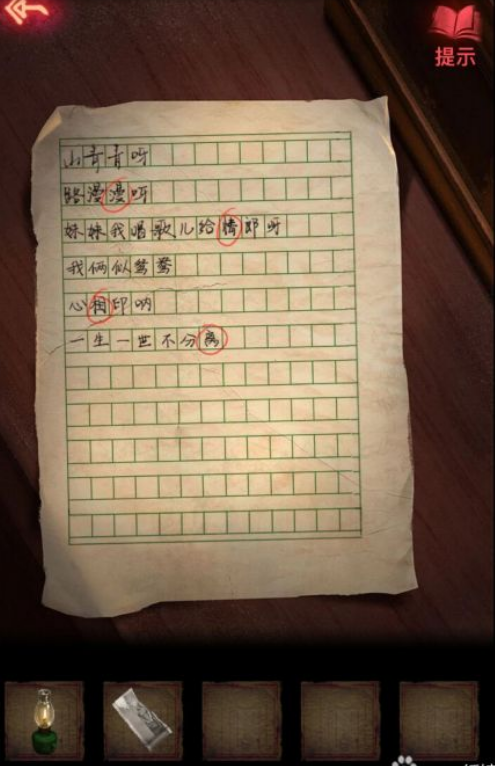 提示
山青青呀
路漫漫呀
妹妹我唱歌儿给情郎呀
我俩似鸳鸯
心相印呐
一生一世不分离